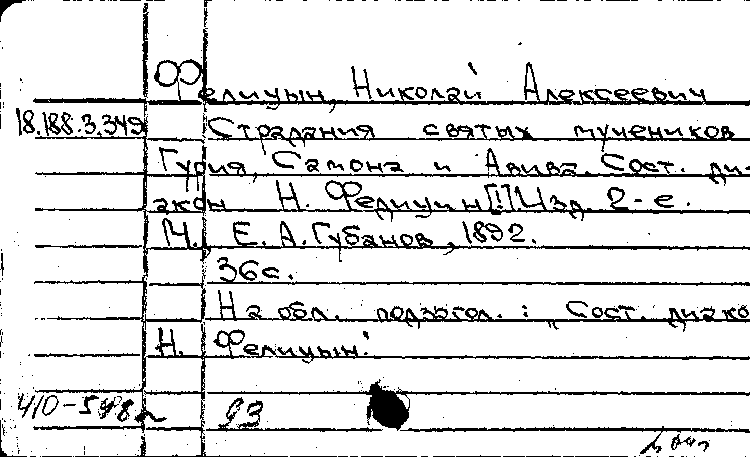 Фелицын, Николай Алексеевич
18.188.3.349 Страдания святых мучеников
Гурия, Самона и Авива. Сост. ди-
акон Н. Фелицин[!] Изд. 2-е.
М., Е. А. Губанов, 1892.
36с.
На обл. подзагол.: „Сост. диако
Н. Фелицын."
93